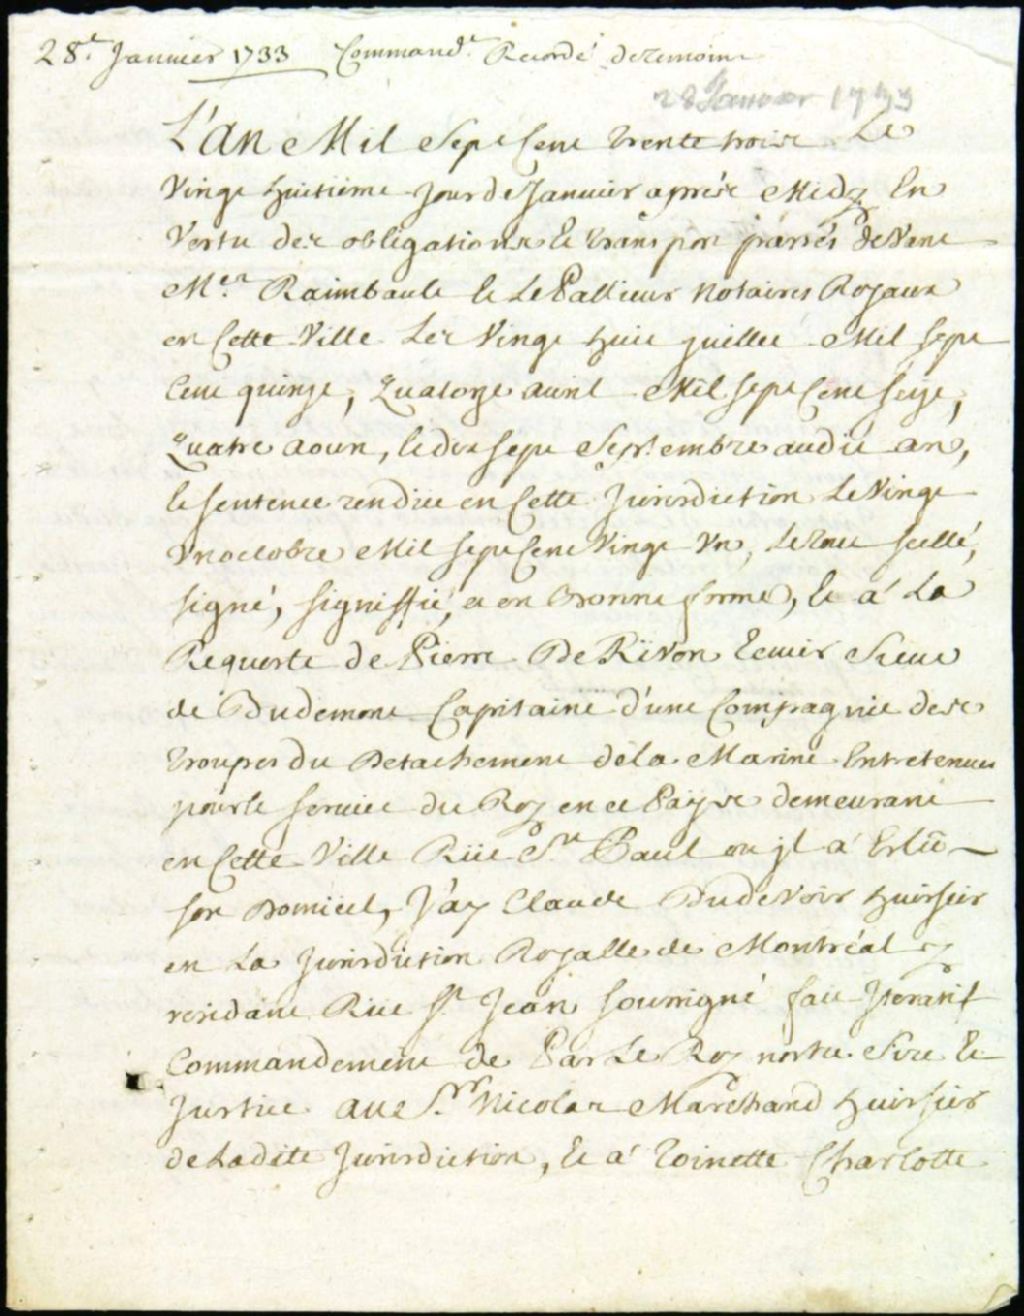 28e. Janvier 1733 Command.t Recordé de temoins
28 Janvier 1733
L'an Mil Sept Cent trente trois Le
Vingt huitiéme jour de Janvier aprés Midy En
Vertu des obligations & transport passés devant
Mes. Raimbault & Le Pallieur Notaires Royaux
en Cette Ville Les Vingt huit juillet Mil sept
Cent quinze, Quatorze avril Mil sept Cent seize,
Quatre aoust, & dix sept Septembre audit an,
& sentence rendüe en Cette Jurisdiction Le Vingt
un octobre Mil sept Cent Vingt Un, Le tout scellé,
signé, signiffié, et en bonne forme, & á La
Requeste de Pierre De Rivon Ecuier Sieur
de Budemont Capitaine d'une Compagnie des
troupes du Detachement de la Marine Entretenues
pour le service du Roy en ce Païys demeurant
en Cette Ville Rüe St. Paul ou jl a Eslû
son Domicil, J'ay Claude Dudevoir huissier
en La Jurisdiction Royalle de Montréal y
residant Rüe St. Jean soussigné fait Iteratif
Commandement de Par Le Roy nostre Sire &
Justice au S.r Nicolas Marchand huissier
de Ladite Jurisdiction, & a' Toinette Charlotte